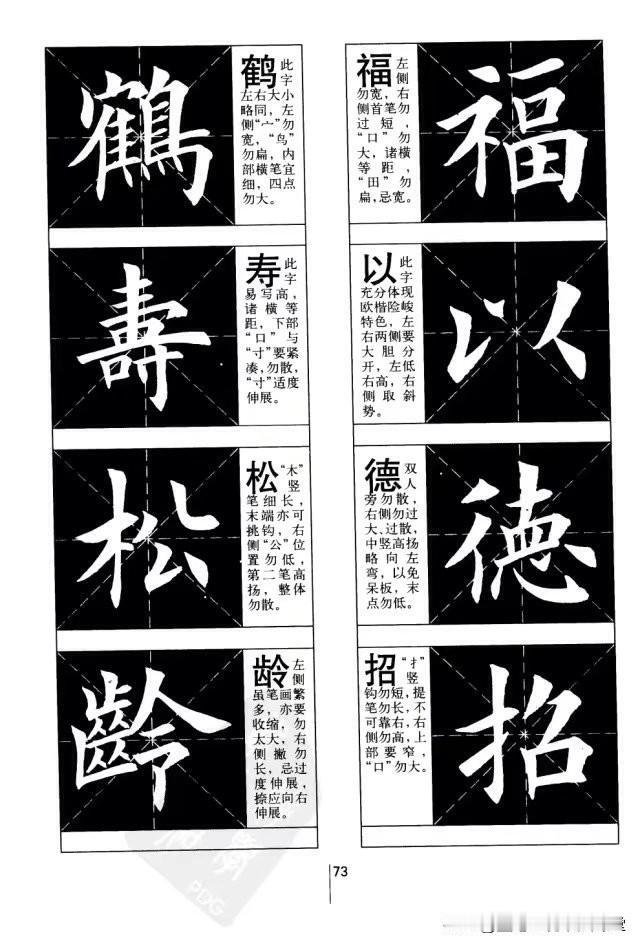 福
福 左
侧
勿宽，右
侧首笔勿
过短，
“口”勿
大，诸横
等距，
“田”勿
扁，忌宽。
以
以 此
字
充分体现
欧楷险峻
特色，左
右两侧要
大胆分
开，左低
右高，右
侧取斜
势。
德
德 双
人
旁勿散，
右侧勿过
大、过散，
中竖高扬
略向左
弯，以免
呆板，末
点勿低。
招
招 “扌”
竖
钩勿短，提
笔勿长，不
可靠右，右
侧勿高，上
部要窄，
“口”勿大。
鹤
鹤 此
字
左右大小
略同，左
侧“亠”勿
宽，“鸟”
勿扁，内
部横笔宜
细，四点
勿大。
壽
寿 此
字
易写高，
诸横等
距，下部
“口”与
“寸”要紧
凑，勿散，
“寸”适度
伸展。
松
松 “木”
竖
笔细长，
末端亦可
挑钩，右
侧“公”位
置勿低，
第二笔高
扬，整体
勿散。
齡
龄 左
侧
虽笔画繁
多，亦要
收缩，勿
太大，右
侧撇勿
长，忌过
度伸展，
捺应向右
伸展。
PDG
73